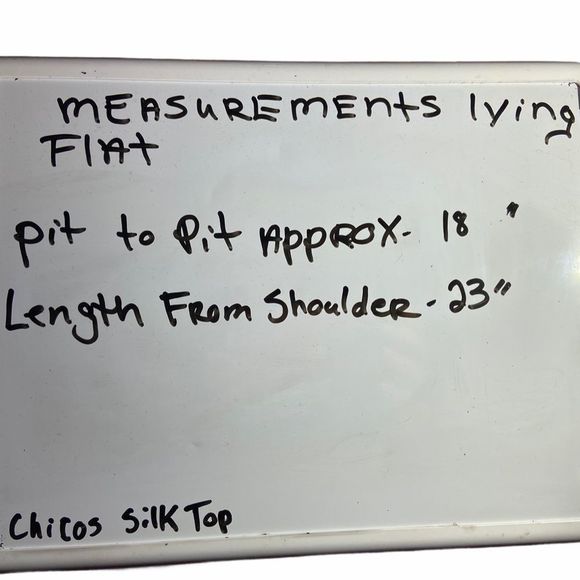 MEASUREMENts lying
FlAt
Pit to Pit APPROX- 18 "
Length FRom ShouldeR - 23"
Chicos SilK Top